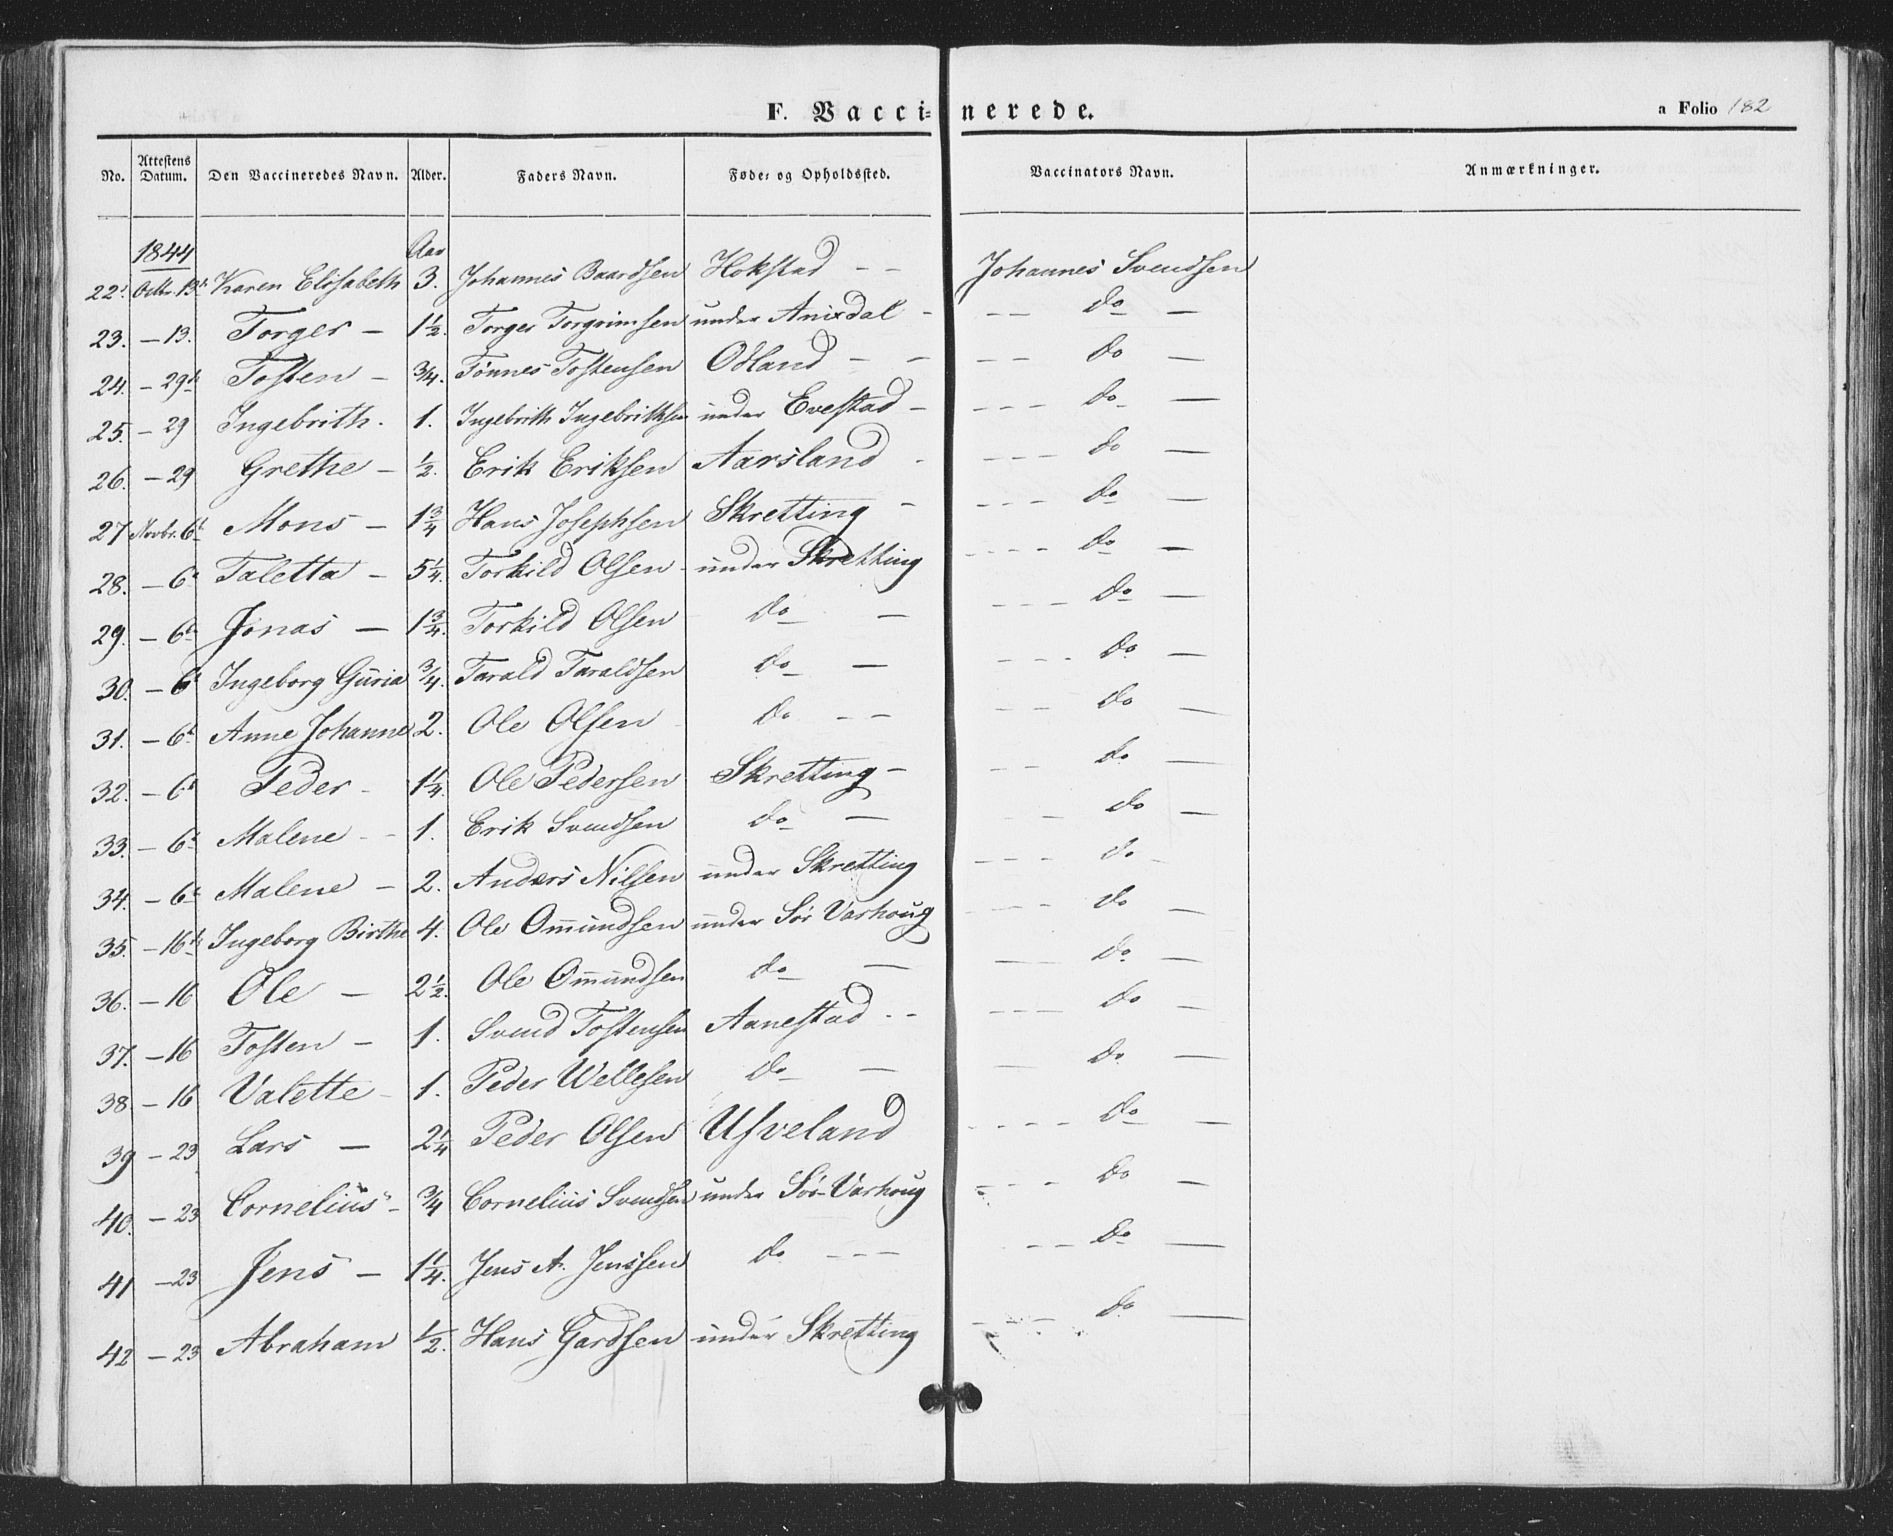 F. Vaccinerede.
a Folio 182
No. Attestens Datum. Den Vaccineredes Navn. Alder. Faders Navn. Føde- og Opholdssted. Vaccinators Navn. Anmærkninger.
1844 Aar
22. Octbr. 13de Karen Elisabeth 3. Johannes Baardsen Hokstad - - Johannes Svendsen
23. - 13. Torger - 1 1/2. Torger Torgrimsen under Anisdal - -- do -
24. - 29de Tosten - 3/4. Tönnes Tostensen Odland - - -- do -
25. - 29 Ingebrith. 1. Ingebrith Ingebrithsen under Evestad - --- do -
26. - 29 Grethe - 1/2. Erik Eriksen Aarsland - --- do -
27 Novbr. 6te Mons - 1 3/4 Hans Josephsen Skretting - --- do -
28. - 6te Taletta - 5 1/4. Torkild Olsen - under Skretting ---- do -
29. - 6te Jonas - 1 3/4. Torkild Olsen do - --- do -
30. - 6te Ingeborg Guria 3/4. Tarald Taraldsen do - --- do -
31. - 6te Anne Johanne 2. Ole Olsen do -- -- do -
32. - 6te Peder - 1 1/4. Ole Pedersen Skretting - -- do -
33. - 6te Malene - - 1. Erik Svendsen do - -- do -
34. - 6te Malene - 2. Anders Nilsen under Skretting --- do -
35. - 16de Ingeborg Birthe 4. Ole Omundsen under Sör Varhoug --- do -
36. - 16 Ole - 2 1/2. Ole Omundsen do - -- do -
37. - 16 Tosten - 1. Svend Tostensen Aanestad - - --- do -
38. - 16 Valette - 1. Peder Wellesen do - - do -
39 - 23 Lars - 2 1/4 Peder Olsen Ufveland ---- do -
40. - 23 Cornelius - 3/4 Cornelius Svendsen under Sör Varhoug ---- do -
41 - 23 Jens - 1 1/4. Jens A. Jenssen do --- --- do -
42 - 23 Abraham 1/2. Hans Gardsen under Skretting ---- do -